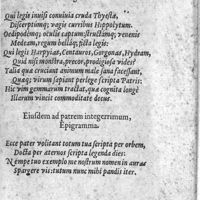 Qui legis inuisi conuiuia cruda Thyestæ,
Discerptúmq; vagis curribus Hippolytum.
Oedipodémq; oculis captum: structámq; venenis
Medeam, regum bellaq; ficta legis:
Qui legis Harpyias, Centauros, Gorgonas, Hydram,
Quid nisi monstra, precor, prodigiosa vides?
Talia quæ cruciant animum male sana facessant,
Quaq; virum sapiant perlege scripta Patris:
Hic vim gemmarum tractat, qua cognita longè
Illarum vincit commoditate decus.
Eiusdem ad patrem integerrimum,
Epigramma.
Ecce pater volitant totum tua scripta per orbem,
Docta per æternos scripta legenda dies:
Nempe tuo exemplo me nostrum nomen in auras
Spargere vis: tutum nunc mihi pandis iter.